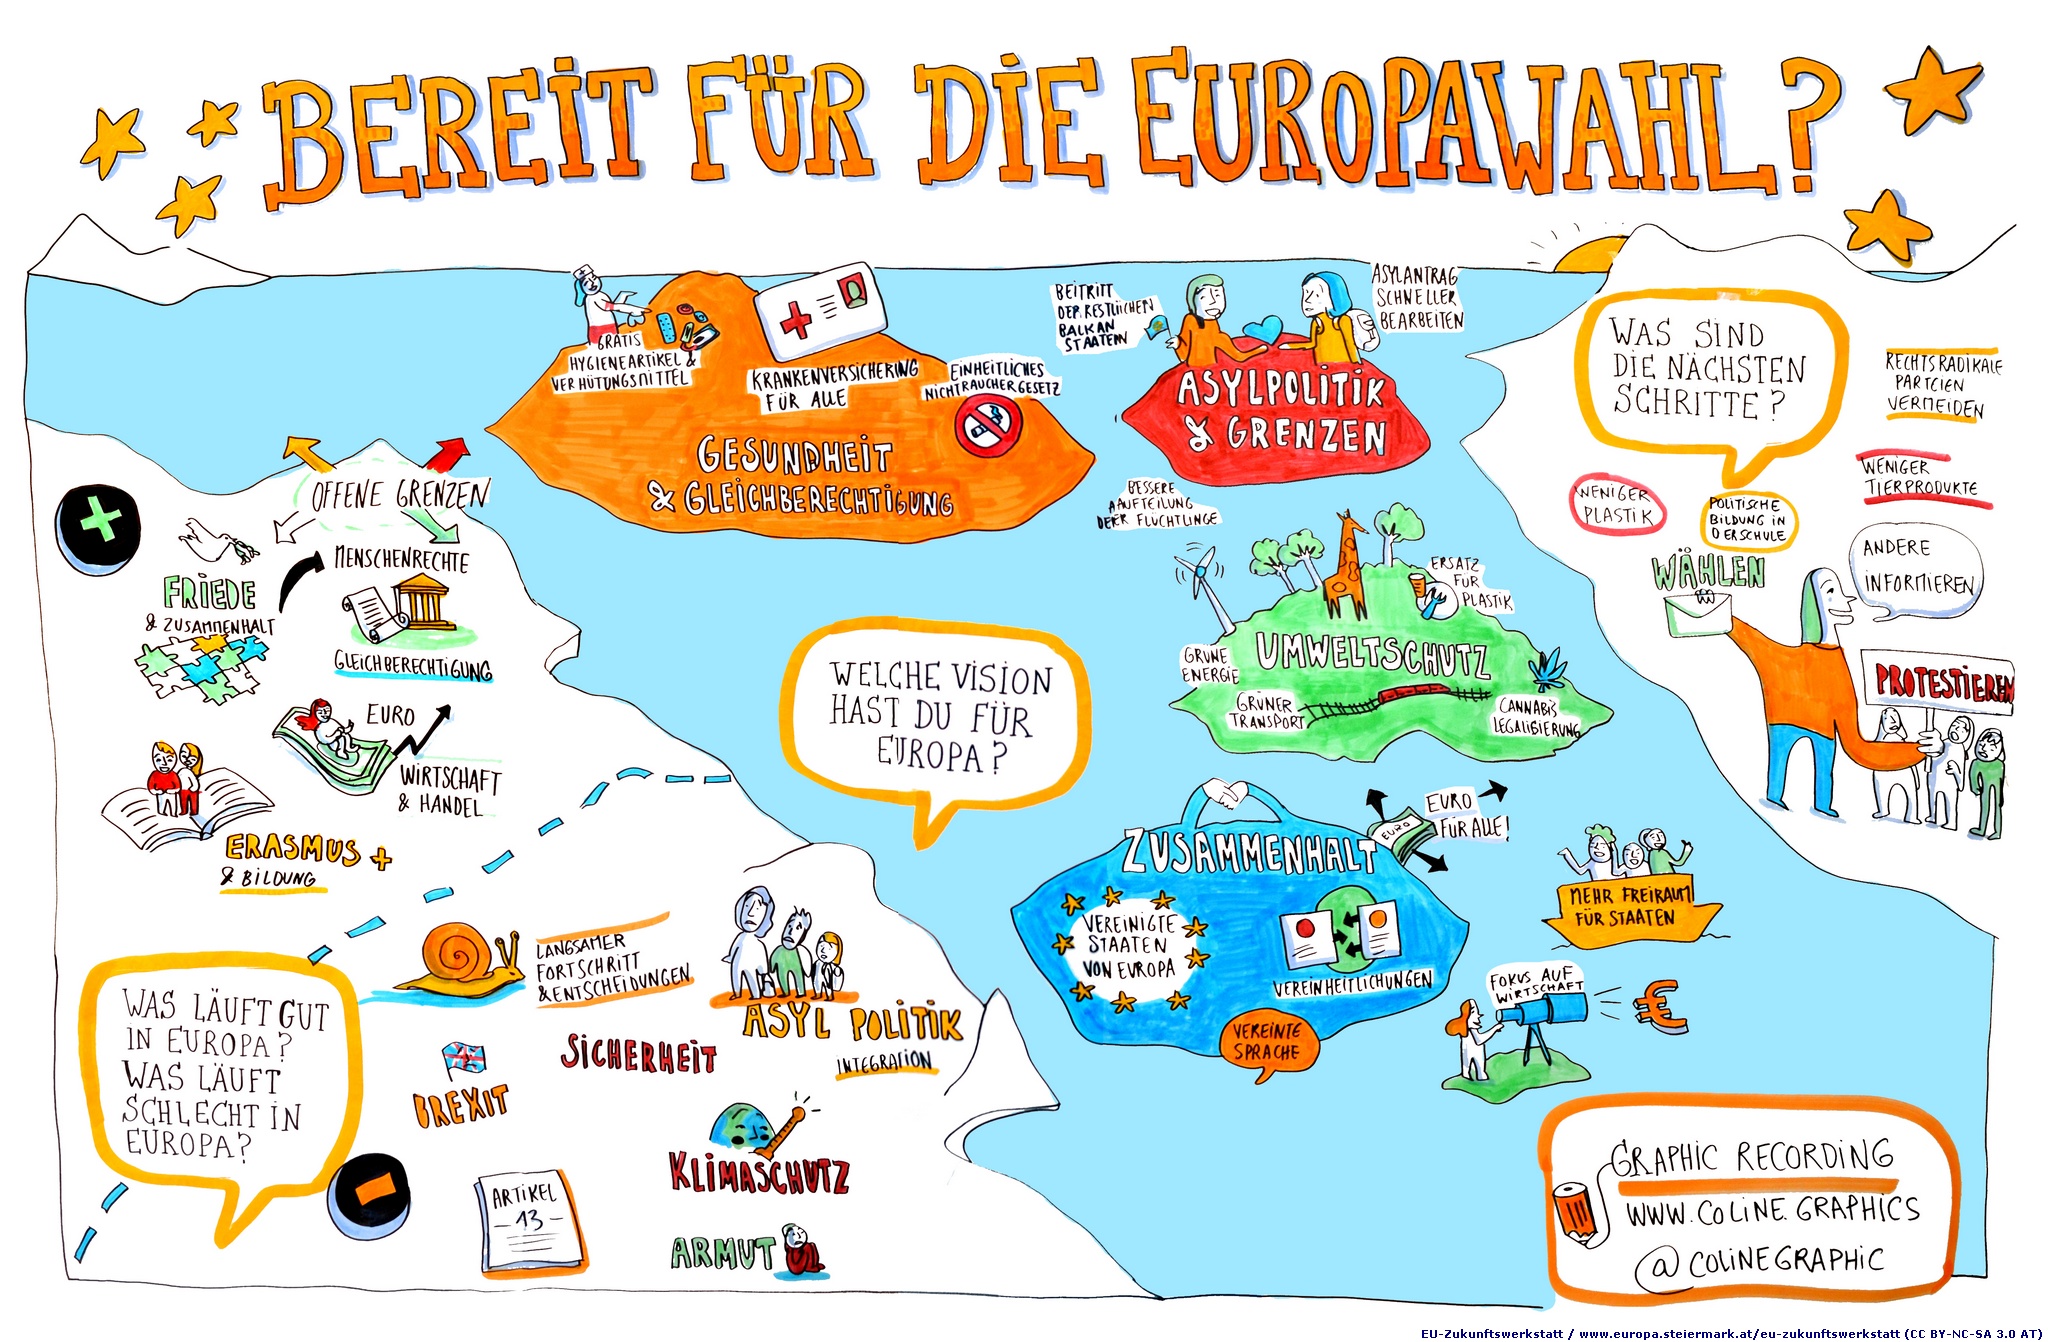 BEREIT FÜR DIE EUROPAWAHL?
GRATIS
HYGIENEARTIKEL &
VERHÜTUNGSMITTEL
KRANKENVERSICHERUNG
FÜR ALLE
EINHEITLICHES
NICHTRAUCHERGESETZ
GESUNDHEIT
& GLEICHBERECHTIGUNG
BEITRITT
DER RESTLICHEN
BALKAN
STAATEN
ASYLANTRAG
SCHNELLER
BEARBEITEN
ASYLPOLITIK
& GRENZEN
BESSERE
AUFTEILUNG
DER FLÜCHTLINGE
WAS SIND
DIE NÄCHSTEN
SCHRITTE?
RECHTSRADIKALE
PARTEIEN
VERMEIDEN
WENIGER
TIERPRODUKTE
WENIGER
PLASTIK
POLITISCHE
BILDUNG IN
DER SCHULE
WÄHLEN
ANDERE
INFORMIEREN
PROTESTIEREN
OFFENE GRENZEN
MENSCHENRECHTE
FRIEDE
& ZUSAMMENHALT
GLEICHBERECHTIGUNG
EURO
WIRTSCHAFT
& HANDEL
ERASMUS +
& BILDUNG
WELCHE VISION
HAST DU FÜR
EUROPA?
ERSATZ
FÜR
PLASTIK
UMWELTSCHUTZ
GRÜNE
ENERGIE
GRÜNER
TRANSPORT
CANNABIS
LEGALISIERUNG
ZUSAMMENHALT
EURO
EURO
FÜR ALLE!
VEREINIGTE
STAATEN
VON EUROPA
VEREINHEITLICHUNGEN
VEREINTE
SPRACHE
MEHR FREIRAUM
FÜR STAATEN
FOKUS AUF
WIRTSCHAFT
€
WAS LÄUFT GUT
IN EUROPA?
WAS LÄUFT
SCHLECHT IN
EUROPA?
LANGSAMER
FORTSCHRITT
& ENTSCHEIDUNGEN
ASYL POLITIK
INTEGRATION
SICHERHEIT
BREXIT
KLIMASCHUTZ
ARTIKEL
- 13 -
ARMUT
GRAPHIC RECORDING
WWW.COLINE.GRAPHICS
@COLINEGRAPHIC
EU-Zukunftswerkstatt / www.europa.steiermark.at/eu-zukunftswerkstatt (CC BY-NC-SA 3.0 AT)